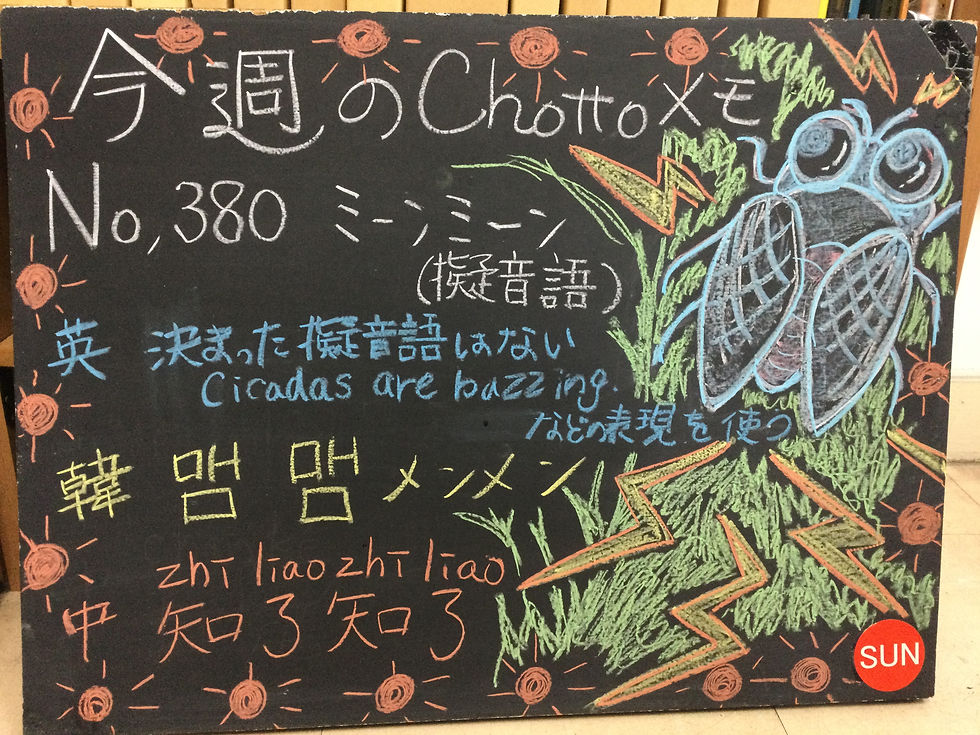 今週のChottoメモ
No,380 ミーンミーン
(擬音語)
英 決まった擬音語はない
Cicadas are buzzing.
などの表現を使う
韓 맴 맴 メンメン
zhī liǎo zhī liǎo
中 知了知了
SUN